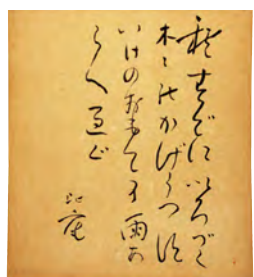 秋すでにいろづく
木々のかげうつす
いけのおもてに雨ふ
らく
比庵